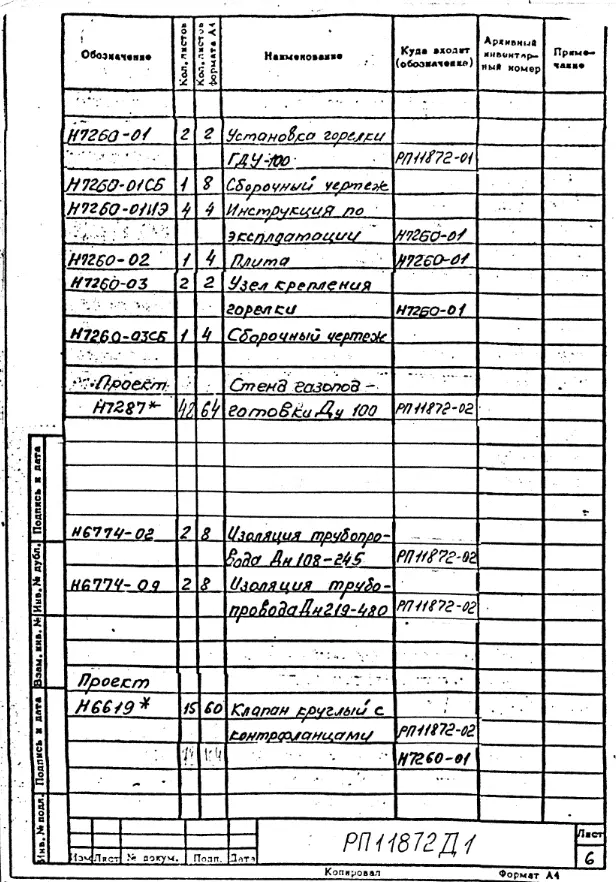 Обозначение Кол. листов Кол. листов формата А4 Наименование Куда входит (обозначение) Архивный инвентарный номер Примечание
Н7260-01 2 2 Установка горелки
ГДУ-100 РП11872-01
Н7260-01СБ 1 8 Сборочный чертеж
Н7260-01ИЭ 4 4 Инструкция по
эксплдатации Н7260-01
Н7260-02 1 4 Плита Н7260-01
Н7260-03 2 2 Узел крепления
горелки Н7260-01
Н7260-03СБ 1 4 Сборочный чертеж
Проект Стенд газопод-
Н7287* 42 64 готовки Ду 100 РП11872-02
Н6774-02 2 8 Изоляция трубопро-
вода Дн108-245 РП11872-02
Н6774-09 2 8 Изоляция трубо-
провода Дн219-480 РП11872-02
Проект
Н6619* 15 60 Клапан круглый с
контрфланцами РП11872-02
Н7260-01
Инв. № подл. Подпись и дата Взам. инв. № Инв. № дубл. Подпись и дата
РП11872Д1
Лист
6
Изм Лист № докум. Подп. Дата
Копировал Формат А4